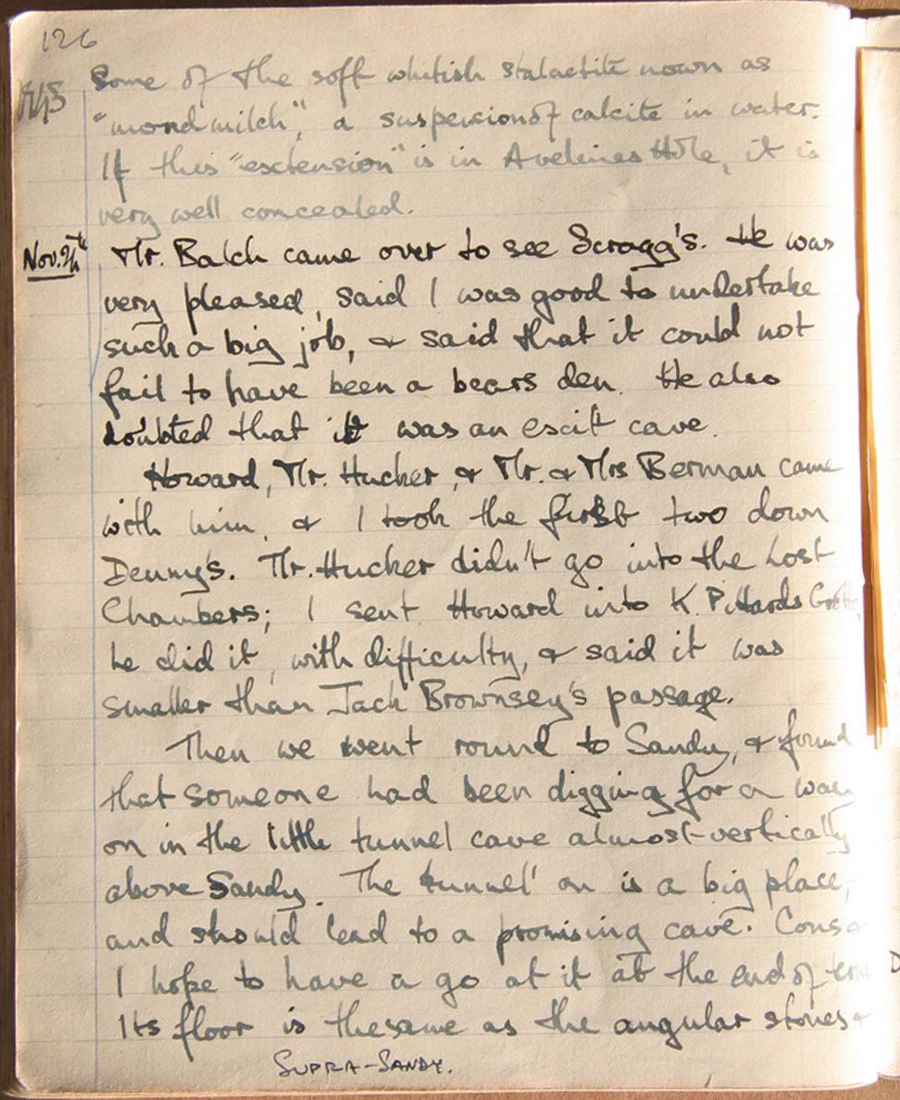 126
Some of the soft whitish stalactite nown as
"mondmilch", a suspension of calcite in water.
If this "esctension" is in Avelines Hole, it is
very well concealed.
Mr. Balch came over to see Scragg's. He was
very pleased, said I was good to undertake
such a big job, & said that it could not
fail to have been a bears den. He also
doubted that it was an escit cave.
Howard, Mr. Hucker, & Mr. & Mrs Berman came
with him, & I took the first two down
Denny's. Mr. Hucker didn't go into the Lost
Chambers; I sent Howard into K. Pittards
he did it, with difficulty, & said it was
smaller than Jack Brownsey's passage.
Then we went round to Sandy, & found
that someone had been digging for a way
on in the little tunnel cave almost vertically
above Sandy. The tunnel' on is a big place,
and should lead to a promising cave.
I hope to have a go at it at the end of
Its floor is the same as the angular stones &
SUPRA-SANDY.